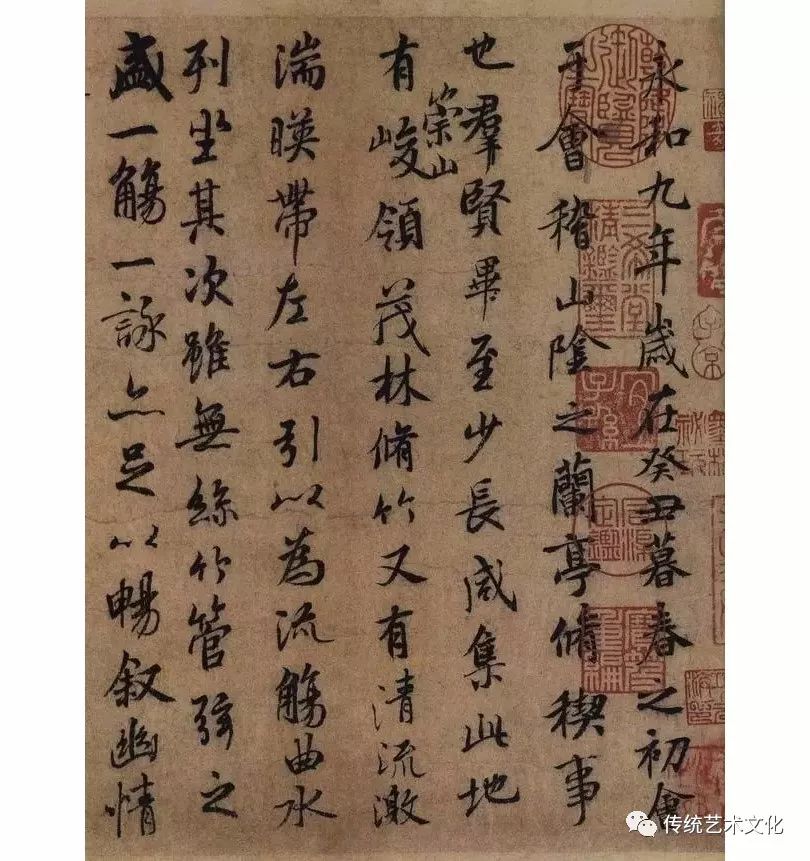 永和九年歲在癸丑暮春之初會
于會稽山陰之蘭亭脩稧事
也羣賢畢至少長咸集此地
有崇山峻領茂林脩竹又有清流激
湍暎帶左右引以為流觴曲水
列坐其次雖無絲竹管弦之
盛一觴一詠亦足以暢敘幽情
三希堂精鑑璽
宜子孫
传统艺术文化